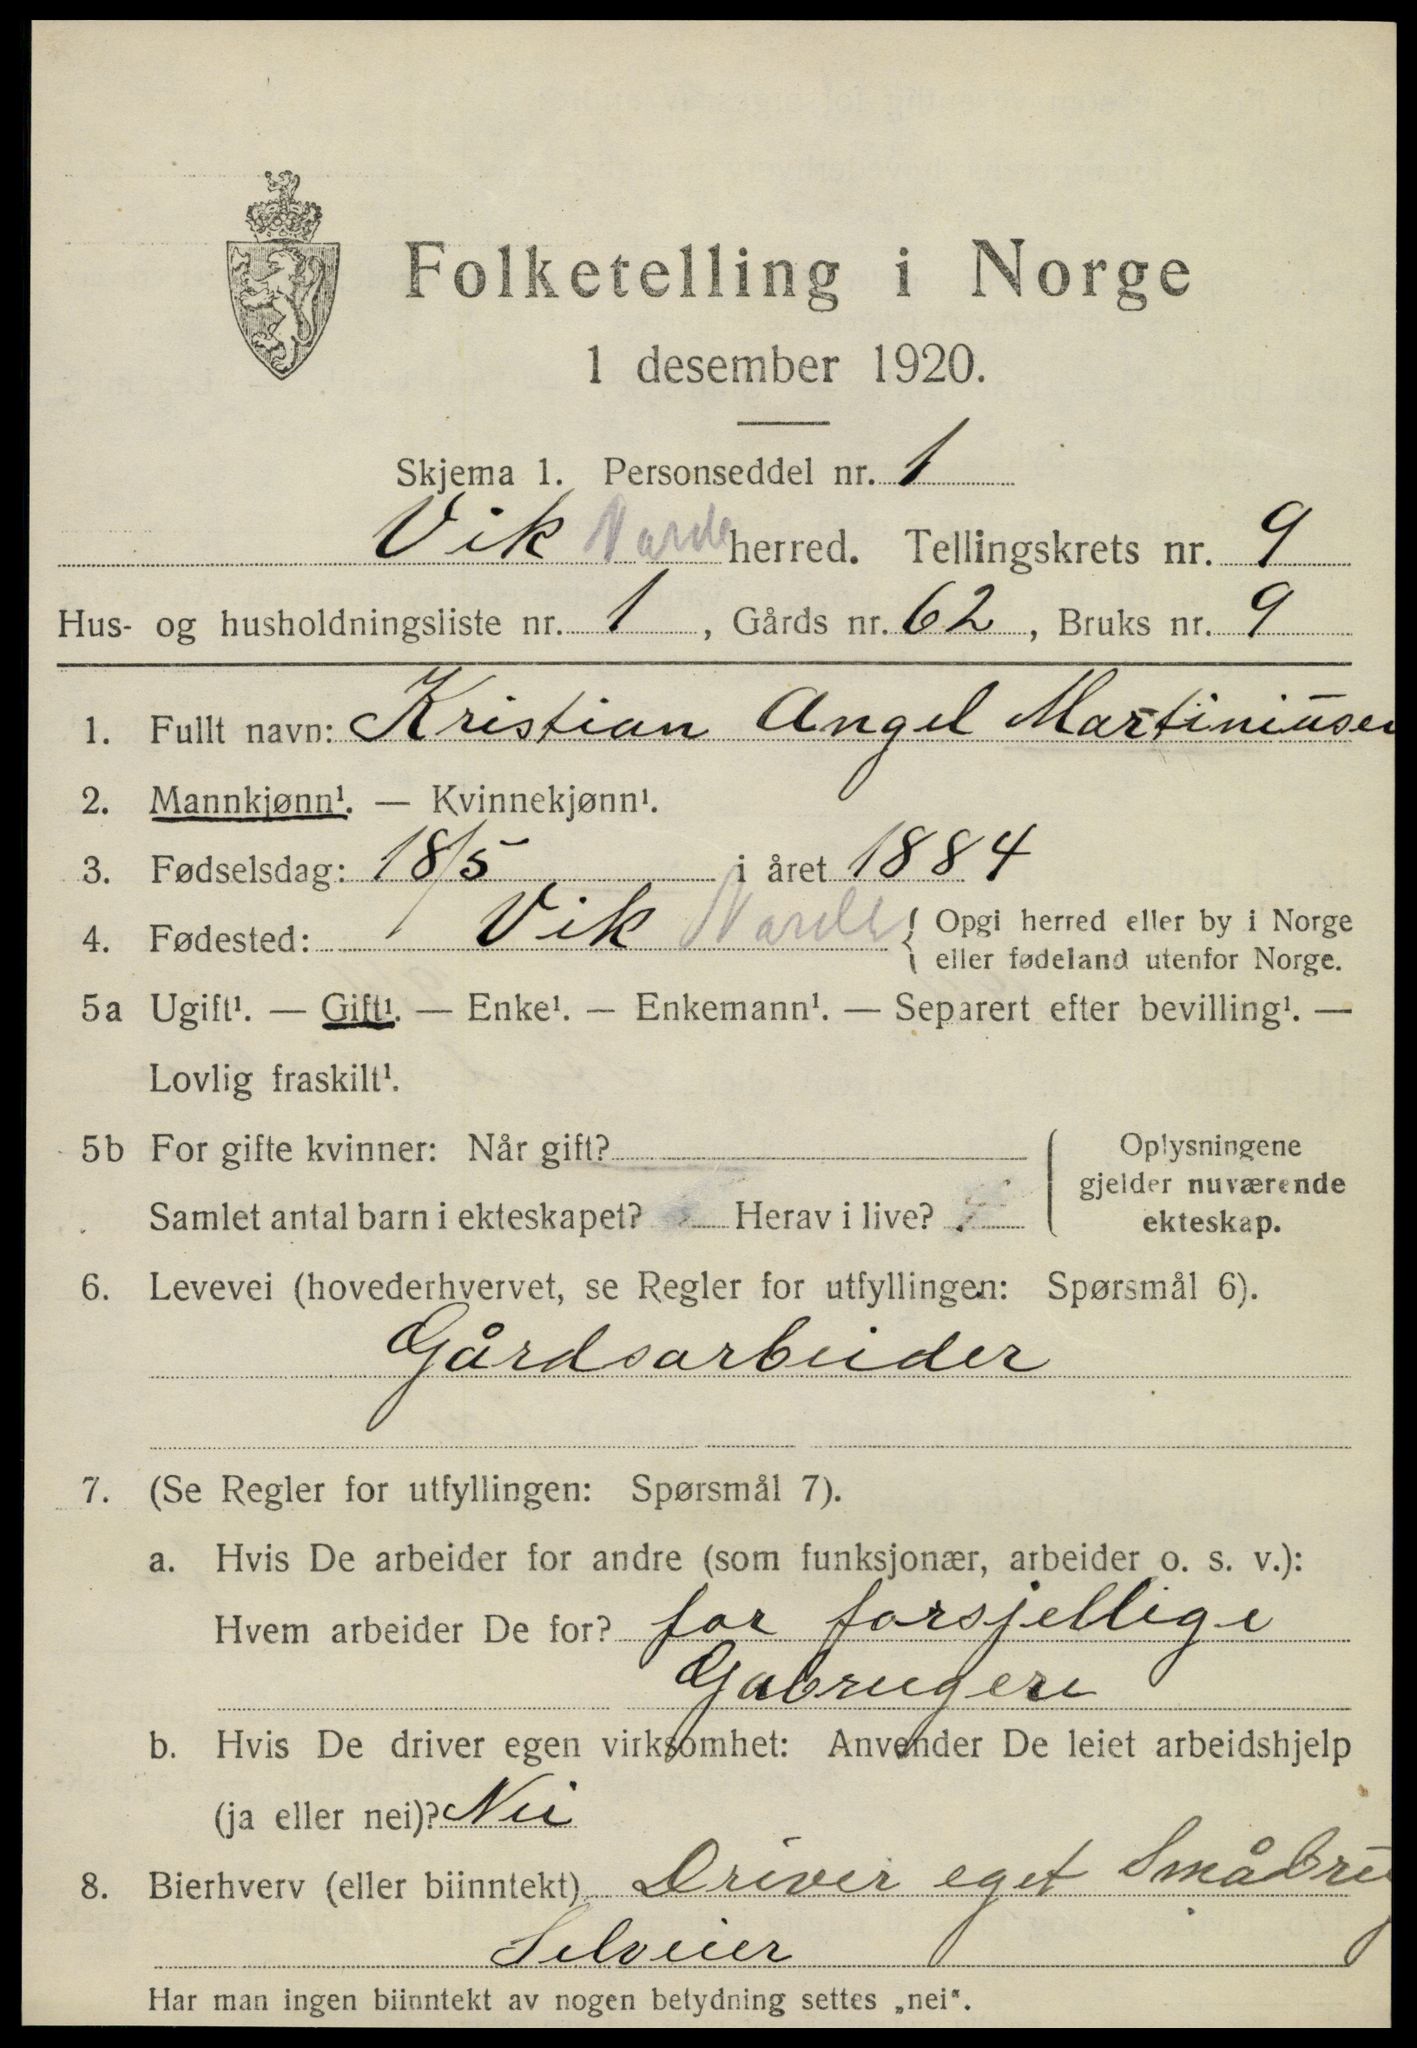 Folketelling i Norge
1 desember 1920.
Skjema 1. Personseddel nr. 1
Vik herred. Tellingskrets nr. 9
Hus- og husholdningsliste nr. 1, Gårds nr. 62, Bruks nr. 9
1. Fullt navn: Kristian Angel Martiniusen
2. Mannkjønn¹. — Kvinnekjønn¹.
3. Fødselsdag: 18/5 i året 1884
4. Fødested: Vik { Opgi herred eller by i Norge
eller fødeland utenfor Norge.
5a Ugift¹. — Gift¹. — Enke¹. — Enkemann¹. — Separert efter bevilling¹. —
Lovlig fraskilt¹.
5b For gifte kvinner: Når gift?
Samlet antal barn i ekteskapet? Herav i live?
Oplysningene
gjelder nuværende
ekteskap.
6. Levevei (hovederhvervet, se Regler for utfyllingen: Spørsmål 6).
Gårdsarbeider
7. (Se Regler for utfyllingen: Spørsmål 7).
a. Hvis De arbeider for andre (som funksjonær, arbeider o. s. v.):
Hvem arbeider De for? for forsjellige
Gabrugere
b. Hvis De driver egen virksomhet: Anvender De leiet arbeidshjelp
(ja eller nei)? Nei
8. Bierhverv (eller biinntekt) Driver eget Småbrug
Selveier
Har man ingen biinntekt av nogen betydning settes „nei“.